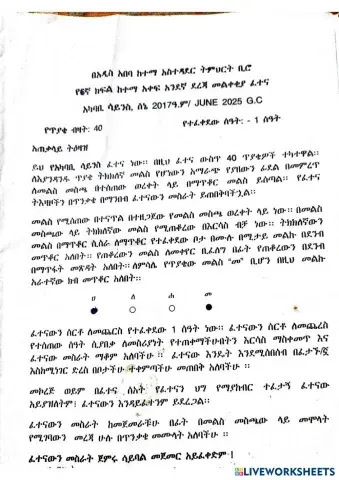 በአዲስ አበባ ከተማ አስተዳደር ትምህርት ቢሮ
የ6ኛ ክፍል ከተማ አቀፍ አንደኛ ደረጃ መልቀቂያ ፈተና
አካባቢ ሳይንስ, ሰኔ 2017ዓ.ም/ JUNE 2025 G.C
የጥያቄ ብዛት: 40
የተፈቀደው ሰዓት: - 1 ሰዓት
አጠቃላይ ትዕዛዝ
ይህ የአካባቢ ሳይንስ ፈተና ነው። በዚህ ፈተና ውስጥ 40 ጥያቄዎች ተካተዋል።
ለእያንዳንዱ ጥያቄ ትክክለኛ መልስ የሆነውን አማራጭ የያዘውን ፊደል በመምረጥ
ለመልስ መስጫ በተሰጠው ወረቀት ላይ በማጥቆር መልስ ይሰጣል። የፈተና
ትእዛዞችን በጥንቃቄ በማንበብ ፈተናውን መስራት ይጠበቅባችኋል።
መልስ የሚሰጠው በተናጥል በተዘጋጀው የመልስ መስጫ ወረቀት ላይ ነው። በመልስ
መስጫው ላይ ትክክለኛውን መልስ የሚጠቆረው በእርሳስ ብቻ ነው። ትክክለኛውን
መልስ በማጥቆር ሲሰራ ለማጥቆር የተፈቀደው ቦታ በሙሉ በሚታይ መልኩ በደንብ
መጥቆር አለበት። የጠቆረውን መልስ ለመቀየር ቢፈለግ በፊት የጠቆረውን በደንብ
በማጥፋት መጽዳት አለበት። ለምሳሌ የጥያቄው መልስ "መ" ቢሆን በዚህ መልኩ
አራተኛው ክብ መጥቆር አለበት።
ሀ ለ ሐ መ
ፈተናውን ሰርቶ ለመጨርስ የተፈቀደው 1 ሰዓት ነው። ፈተናውን ሰርቶ ለመጨረስ
የተሰጠው ሰዓት ሲያበቃ ለመስሪያነት የተጠቀማችሁበትን እርሳስ ማስቀመጥ እና
ፈተናው መስራት ማቆም አለባችሁ ። ፈተናው እንዴት እንደሚሰበሰብ በፈታኙ/ኟ
እስከሚነገር ድረስ በቦታችሁ ተቀምጣችሁ መጠበቅ አለባችሁ ።
መኮረጅ ወይም በፈተና ሰአት የፈተናን ህግ የማያከብር ተፈታኝ ፈተናው
አይያዝለትም፤ ፈተናውን እንዳይፈተንም ይደረጋል።
ፈተናውን መስራት ከመጀመራችሁ በፊት በመልስ መስጫው ላይ መሞላት
የሚገባውን መረጃ ሁሉ በጥንቃቄ መሙላት አለባችሁ ።
ፈተናውን መስራት ጀምሩ ሳይባል መጀመር አይፈቀድም !
LIVEWORKSHEETS